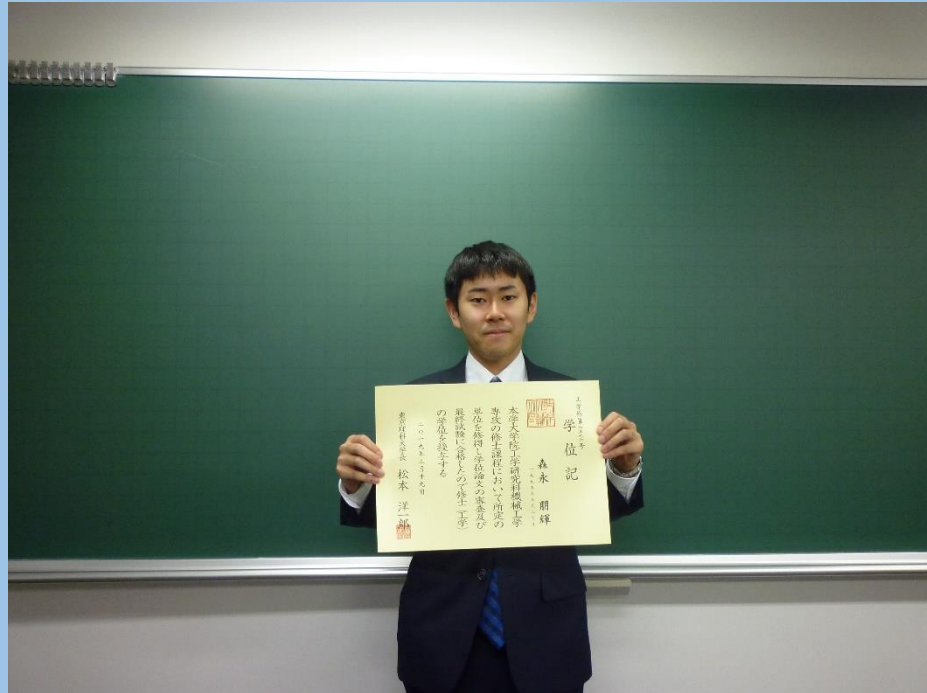 学位記
森永 朋輝
本学大学院工学研究科機械工学
専攻の修士課程において所定の
単位を修得し学位論文の審査及び
最終試験に合格したので修士（工学）
の学位を授与する
二〇一九年三月十九日
東京理科大学長 松本 洋一郎